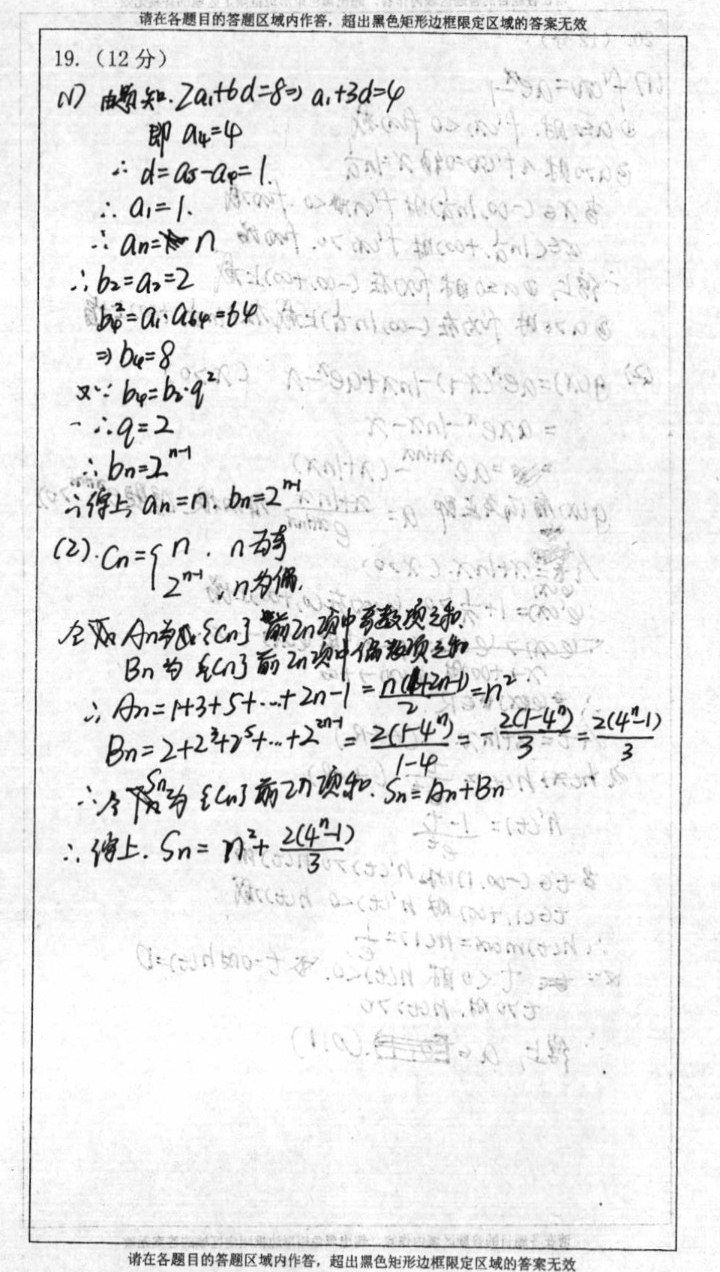 请在各题目的答题区域内作答，超出黑色矩形边框限定区域的答案无效
19.（12分）
(1) 由题知. 2a₁+6d=8⇒ a₁+3d=4
即 a₄=4
∴ d=a₅-a₄=1.
∴ a₁=1.
∴ aₙ= n
∴b₂=a₂=2
b₄²=a₁·a₆₄=64
⇒b₄=8
又∵ b₄=b₂·q²
∴q=2
∴bₙ=2ⁿ⁻¹
∴综上, aₙ=n, bₙ=2ⁿ⁻¹
(2). Cₙ={ n , n为奇
2ⁿ⁻¹ , n为偶.
令 Aₙ为 {Cₙ} 前2n项中奇数项之和
Bₙ为 {Cₙ} 前2n项中偶数项之和
∴ Aₙ=1+3+5+…+2n-1 = n(1+2n-1)/2 =n²
Bₙ=2+2³+2⁵+…+2²ⁿ⁻¹ = 2(1-4ⁿ)/(1-4) = -2(1-4ⁿ)/3 = 2(4ⁿ-1)/3
∴令 Sₙ为 {Cₙ} 前2n项和. Sₙ=Aₙ+Bₙ
∴综上. Sₙ= n²+ 2(4ⁿ-1)/3
请在各题目的答题区域内作答，超出黑色矩形边框限定区域的答案无效